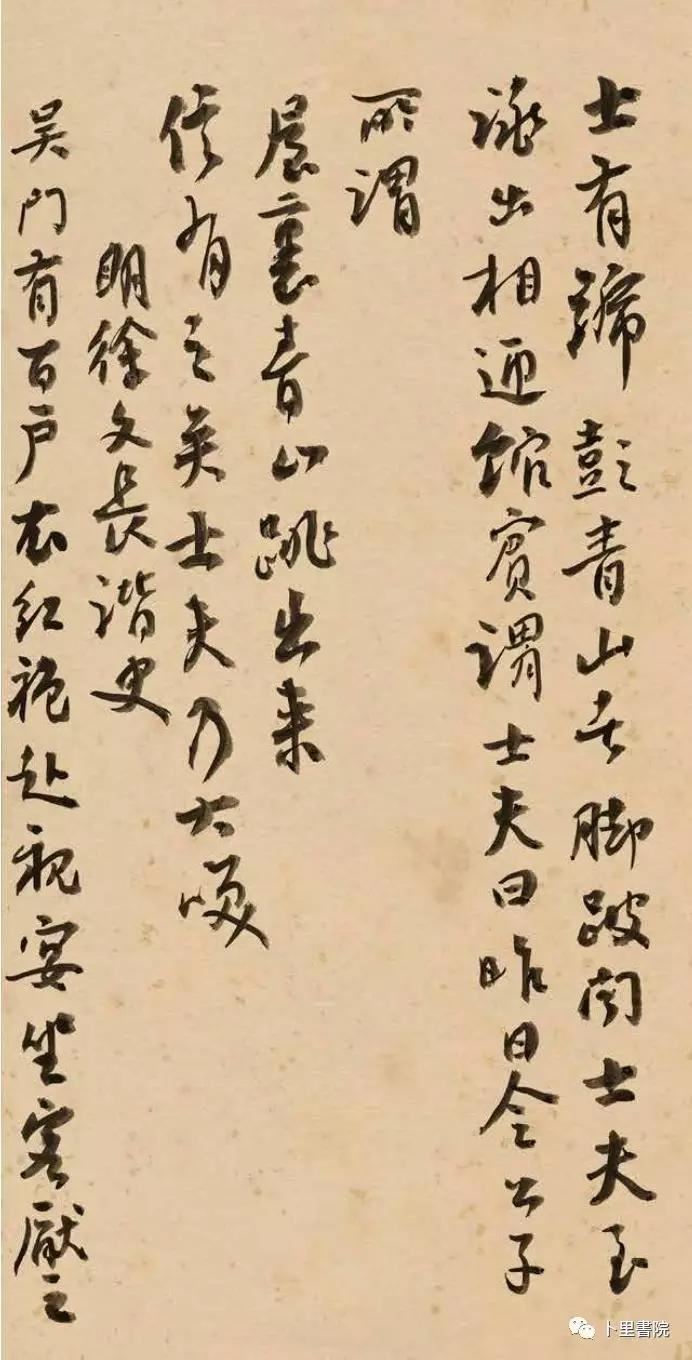 士有號彭青山者脚跛闻士夫至
出相迎館賓謂士夫曰昨日令公子
所謂
屋裏青山跳出来
信有之矣士夫乃大咲
明徐文長諧史
吴門有百户衣红袍赴親宴坐客厭之
卜里書院